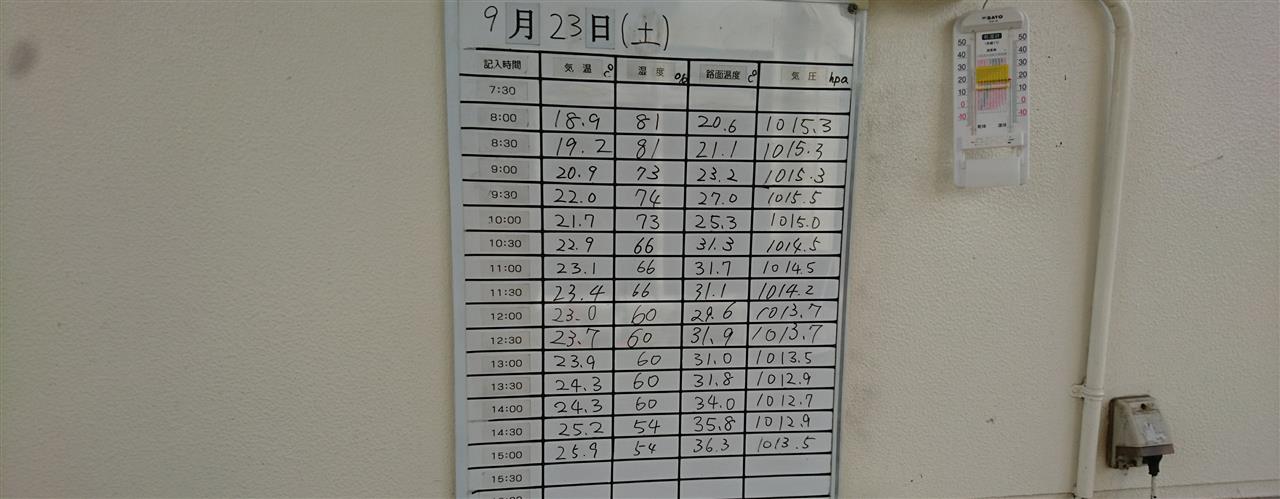 9月23日(土)
記入時間 気温 ℃ 湿度 % 路面温度 ℃ 気圧 hpa
7:30
8:00 18.9 81 20.6 1015.3
8:30 19.2 81 21.1 1015.3
9:00 20.9 73 23.2 1015.3
9:30 22.0 74 27.0 1015.5
10:00 21.7 73 25.3 1015.0
10:30 22.9 66 31.3 1014.5
11:00 23.1 66 31.7 1014.5
11:30 23.4 66 31.1 1014.2
12:00 23.0 60 29.6 1013.7
12:30 23.7 60 31.9 1013.7
13:00 23.9 60 31.0 1013.5
13:30 24.3 60 31.8 1012.9
14:00 24.3 60 34.0 1012.7
14:30 25.2 54 35.8 1012.9
15:00 25.9 54 36.3 1013.5
15:30
SATO
50 50
40 40
30 30
20 20
10 10
0 0
10 10